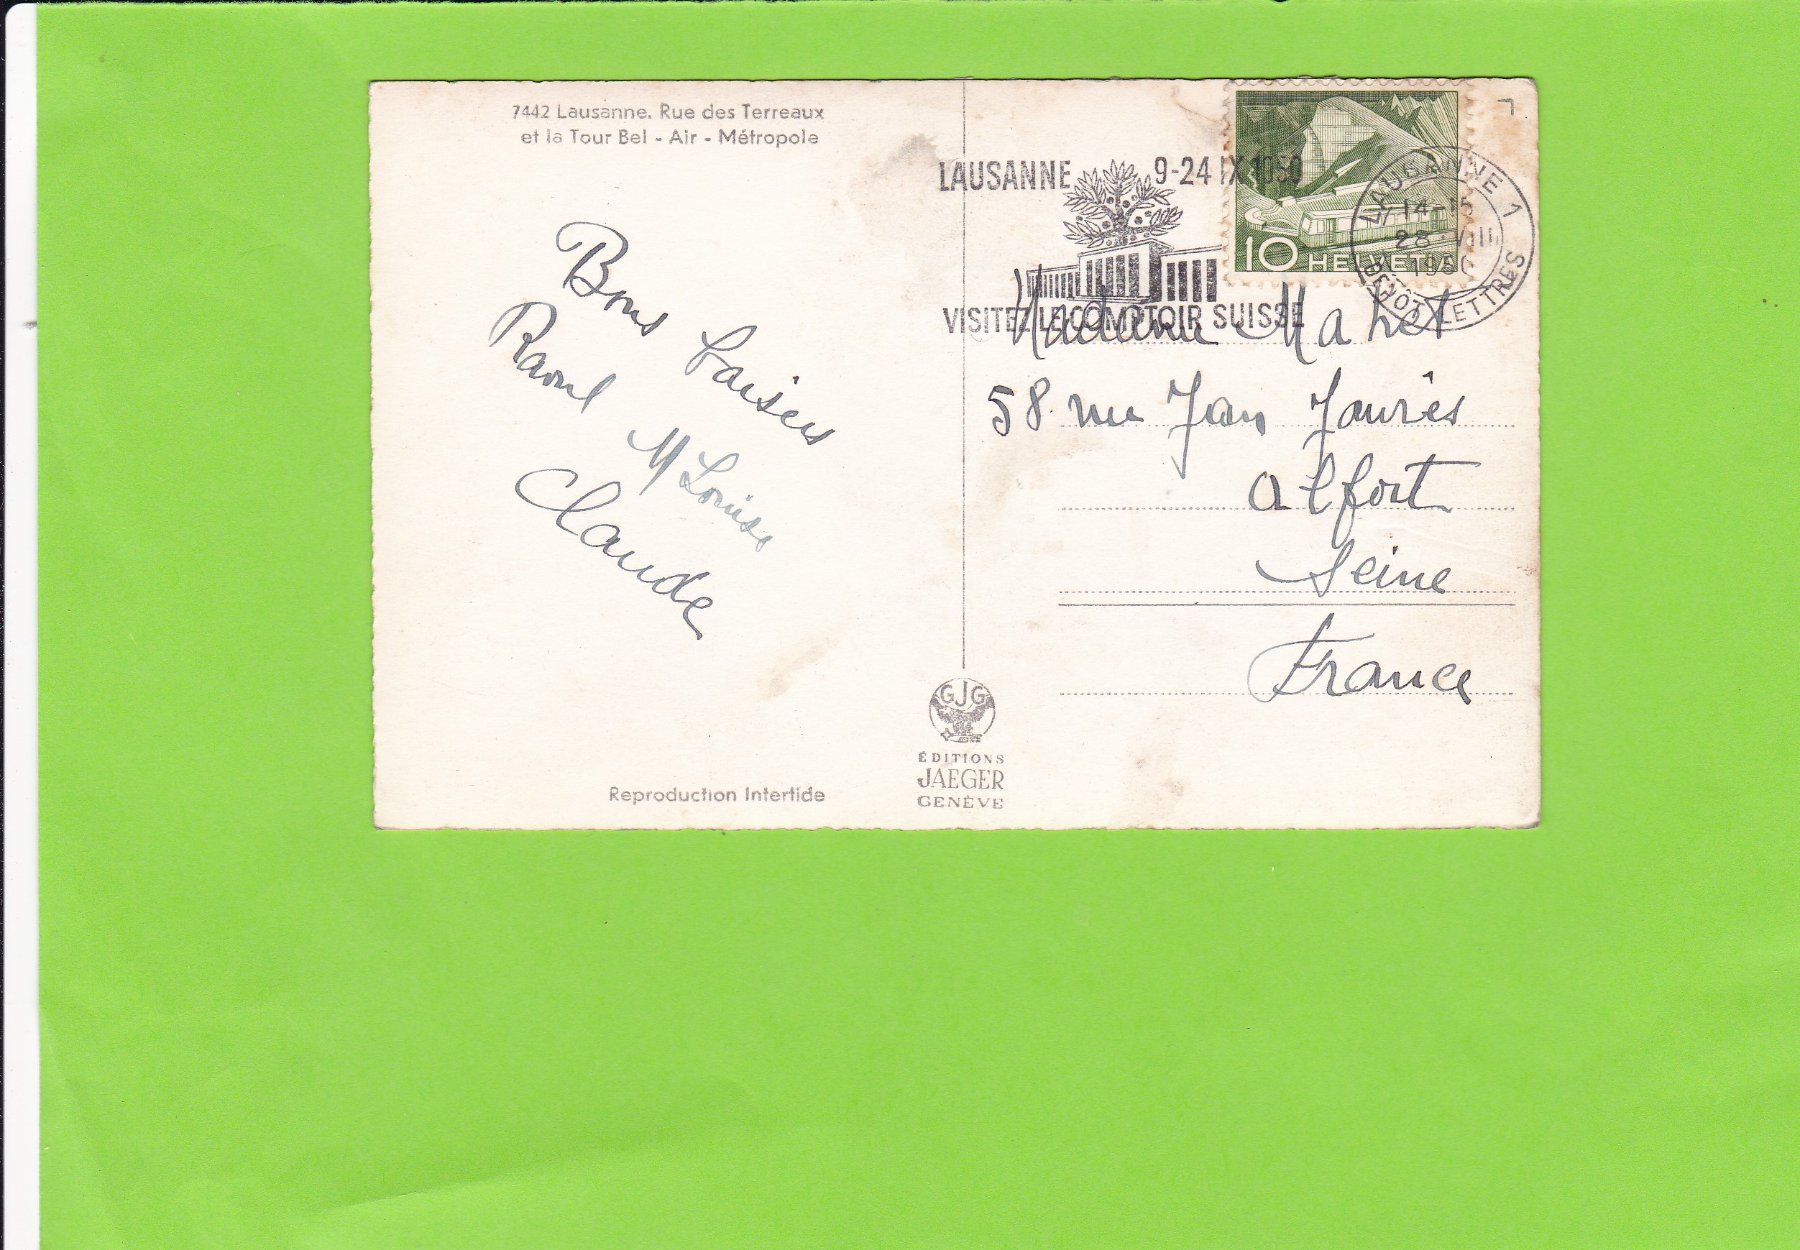 7442 Lausanne. Rue des Terreaux
et la Tour Bel - Air - Métropole
Bons baisers
Raoul M Louise
Claude
Reproduction Intertide
GJG
ÉDITIONS
JAEGER
GENÈVE
LAUSANNE 9-24 IX 1950
VISITEZ LE COMPTOIR SUISSE
10 HELVETIA
LAUSANNE 1
14-15
28 VIII
1950
DÉPÔT LETTRES
Madame Mahet
58 rue Jean Jaurès
Alfort
Seine
France